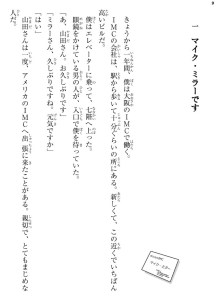 一　マイク・ミラーです
きょうから一年間、僕は大阪のIMCで働く。
IMCの会社は、駅から歩いて十分ぐらいの所にある。新しくて、この近くでいちばん
高いビルだ。
僕はエレベーターに乗って、七階へ上った。
眼鏡をかけている男の人が、入口で僕を待っていた。
「あ、山田さん。お久しぶりです」
「ミラーさん、久しぶりですね。元気ですか」
「はい」
山田さんは一度、アメリカのIMCへ出張に来たことがある。親切で、とてもまじめな
人だ。
マイク・ミラー